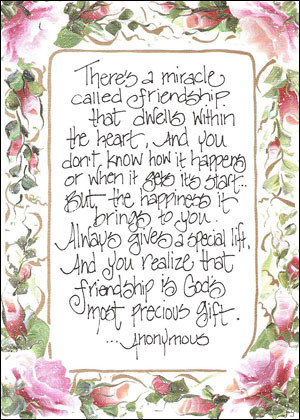 There's a miracle
called friendship
that dwells within
the heart, And you
don't know how it happens
or when it gets it's start...
But the happiness it
brings to you
Always gives a special lift,
And you realize that
friendship is God's
most precious gift.
...Anonymous